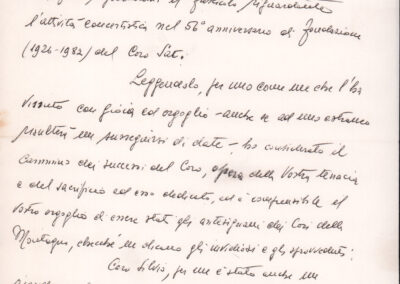 l'attività concertistica nel 56° anniversario di fondazione
(1926-1982) del Coro Sat.
Leggendolo, per uno come me che l'ha
vissuto con gioia ed orgoglio - anche se ad uno estraneo
risulterà un susseguirsi di date - ho considerato il
cammino dei successi del Coro, opera della Vostra tenacia
e del sacrificio ad esso dedicato, ed è comprensibile il
Vostro orgoglio di essere stati gli antesignani dei Cori della
Montagna, checché ne dicano gli invidiosi e gli sprovveduti;
Caro Silvio, per me è stata anche un